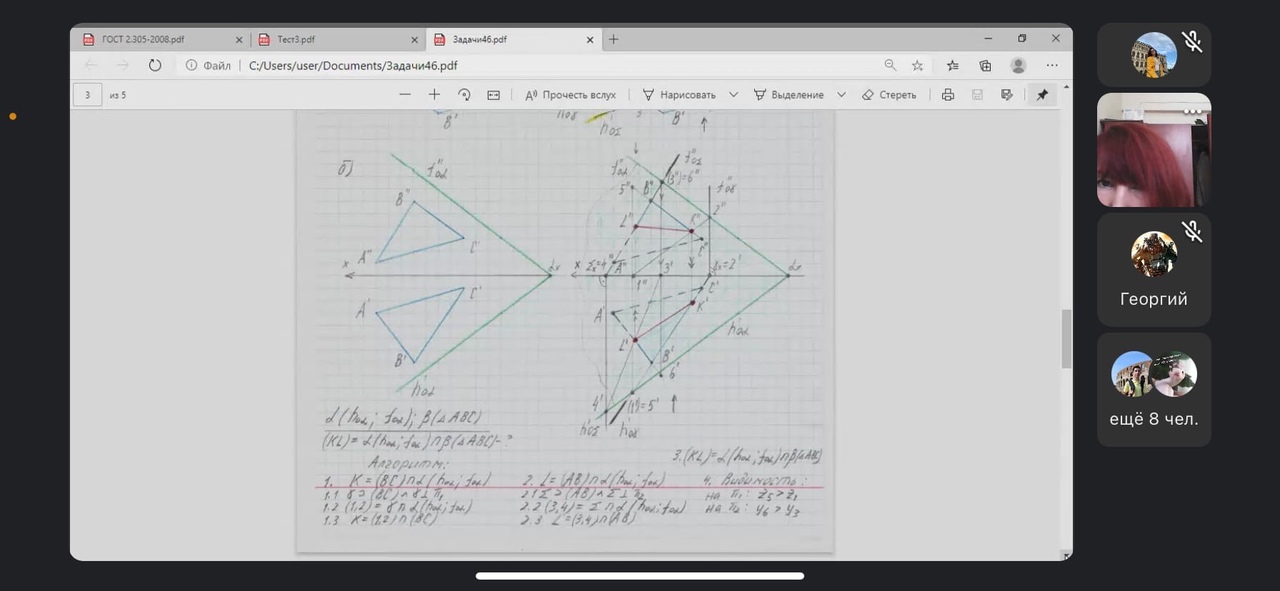 ГОСТ 2.305-2008.pdf
Тест3.pdf
Задачи4б.pdf
Файл
C:/Users/user/Documents/Задачи4б.pdf
3 из 5
Прочесть вслух
Нарисовать
Выделение
Стереть
B'
h'oΣ
B'
б)
f"oα
B"
A"
C"
x
αx
A'
C'
B'
h'oα
f"oα
f"oΣ
5"
B"
(3")≡6"
f"oγ
2"
L"
K"
C"
x
Σx≡4"
A"
1"
3'
γx≡2'
αx
A'
C'
K'
L'
h'oα
B'
6'
4'
(1')≡5'
h'oΣ
h'oγ
α(hoα; foα); β(△ABC)
(KL)=α(hoα; foα)∩β(△ABC)-?
3.(KL)=α(hoα; foα)∩β(△ABC)
Алгоритм:
1. K=(BC)∩α(hoα; foα)
1.1 γ⊃(BC)∧γ⊥π1
1.2 (1,2)=γ∩α(hoα; foα)
1.3 K=(1,2)∩(BC)
2. L=(AB)∩α(hoα; foα)
2.1 Σ⊃(AB)∧Σ⊥π2
2.2 (3,4)=Σ∩α(hoα; foα)
2.3 L=(3,4)∩(AB)
4. Видимость:
на π1: z5>z1
на π2: y6>y3
Георгий
ещё 8 чел.